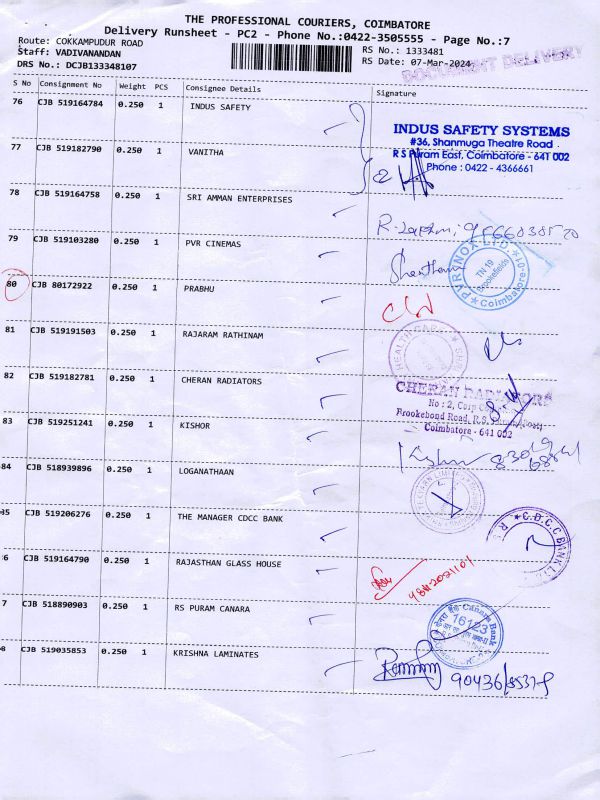 THE PROFESSIONAL COURIERS, COIMBATORE
Delivery Runsheet - PC2 - Phone No.:0422-3505555 - Page No.:7
Route: COKKAMPUDUR ROAD
Staff: VADIVANANDAN
DRS No.: DCJB133348107
RS No.: 1333481
RS Date: 07-Mar-2024
DOCUMENT DELIVERY
S No Consignment No Weight PCS Consignee Details Signature
76 CJB 519164784 0.250 1 INDUS SAFETY
INDUS SAFETY SYSTEMS
#36, Shanmuga Theatre Road
R S Puram East, Coimbatore - 641 002
Phone : 0422 - 4366661
77 CJB 519182790 0.250 1 VANITHA
78 CJB 519164758 0.250 1 SRI AMMAN ENTERPRISES
79 CJB 519103280 0.250 1 PVR CINEMAS
PVR INOX LTD
TN 19
Brookefields
Coimbatore-01
80 CJB 80172922 0.250 1 PRABHU
81 CJB 519191503 0.250 1 RAJARAM RATHINAM
HEALTH CARE
82 CJB 519182781 0.250 1 CHERAN RADIATORS
CHERAN RADIATORS
No : 2, Corp
Brookebond Road, R.S.
Coimbatore - 641 002
83 CJB 519251241 0.250 1 KISHOR
84 CJB 518939896 0.250 1 LOGANATHAAN
35 CJB 519206276 0.250 1 THE MANAGER CDCC BANK
C.D.C.C BANK LTD
R.S
6 CJB 519164790 0.250 1 RAJASTHAN GLASS HOUSE
7 CJB 518890903 0.250 1 RS PURAM CANARA
Canara Bank
16123
8 CJB 519035853 0.250 1 KRISHNA LAMINATES